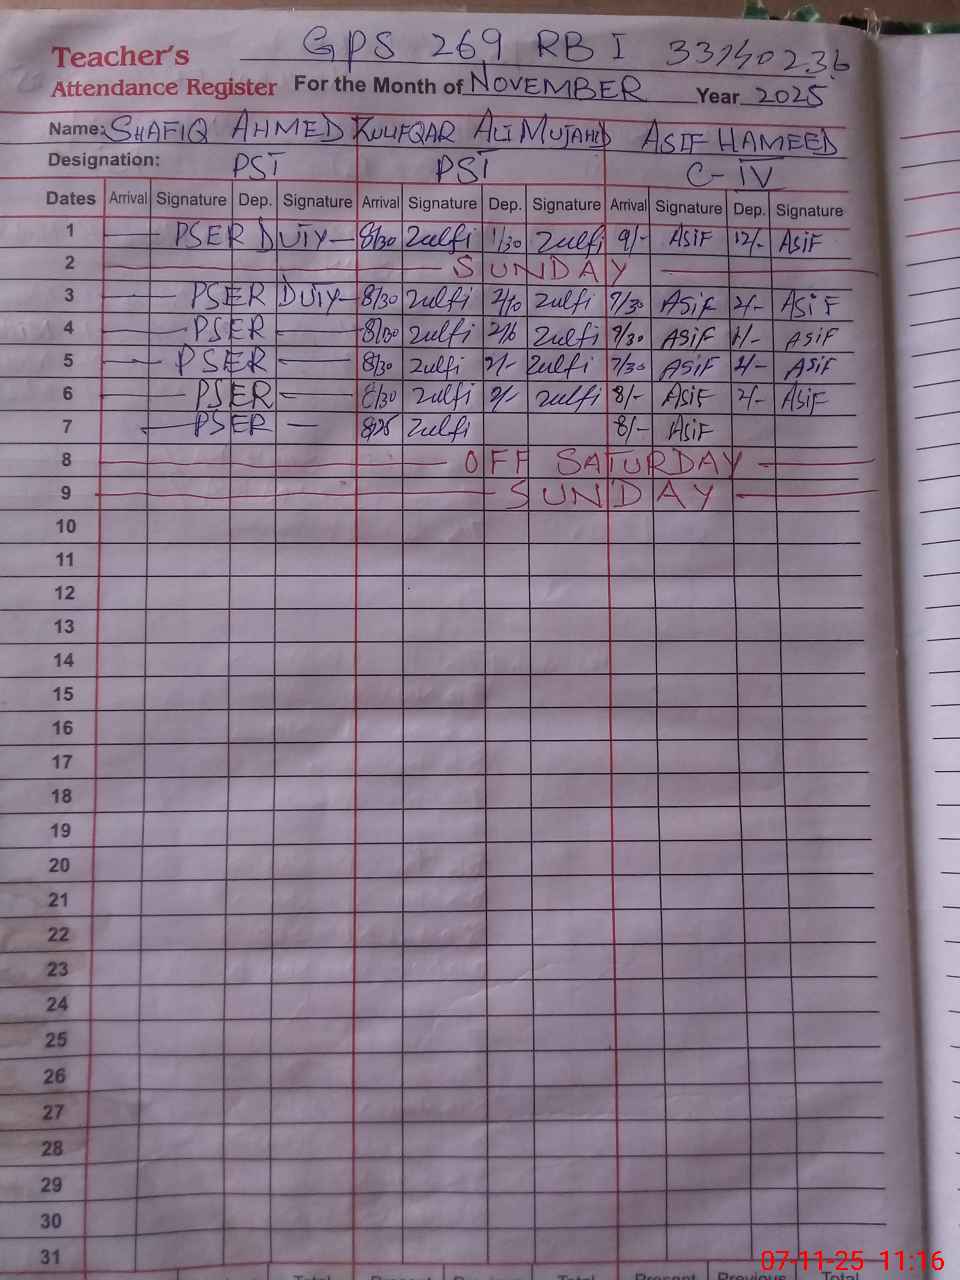 GPS 269 RB I 33140236
Teacher's
Attendance Register For the Month of NOVEMBER Year 2025
Name: SHAFIQ AHMED ZULIFQAR ALI MUJAHID ASIF HAMEED
Designation: PST PST C-IV
Dates Arrival Signature Dep. Signature Arrival Signature Dep. Signature Arrival Signature Dep. Signature
1 PSER DUTY 8/30 Zulfi 1/30 Zulfi 9/- ASiF 12/- ASiF
2 SUNDAY
3 PSER DUTY 8/30 Zulfi 2/10 Zulfi 7/30 ASiF 2/- ASiF
4 PSER Zulfi Zulfi 7/30 ASiF ASiF
5 PSER 8/30 Zulfi 2/- Zulfi 7/30 ASiF 2/- ASiF
6 PSER 8/30 Zulfi 2/- Zulfi 8/- ASiF 2/- ASiF
7 PSER 8/25 Zulfi 8/- ASiF
8 OFF SATURDAY
9 SUNDAY
10
11
12
13
14
15
16
17
18
19
20
21
22
23
24
25
26
27
28
29
30
31
07-11-25 11:16
Total Present Previous Total Present Previous Total